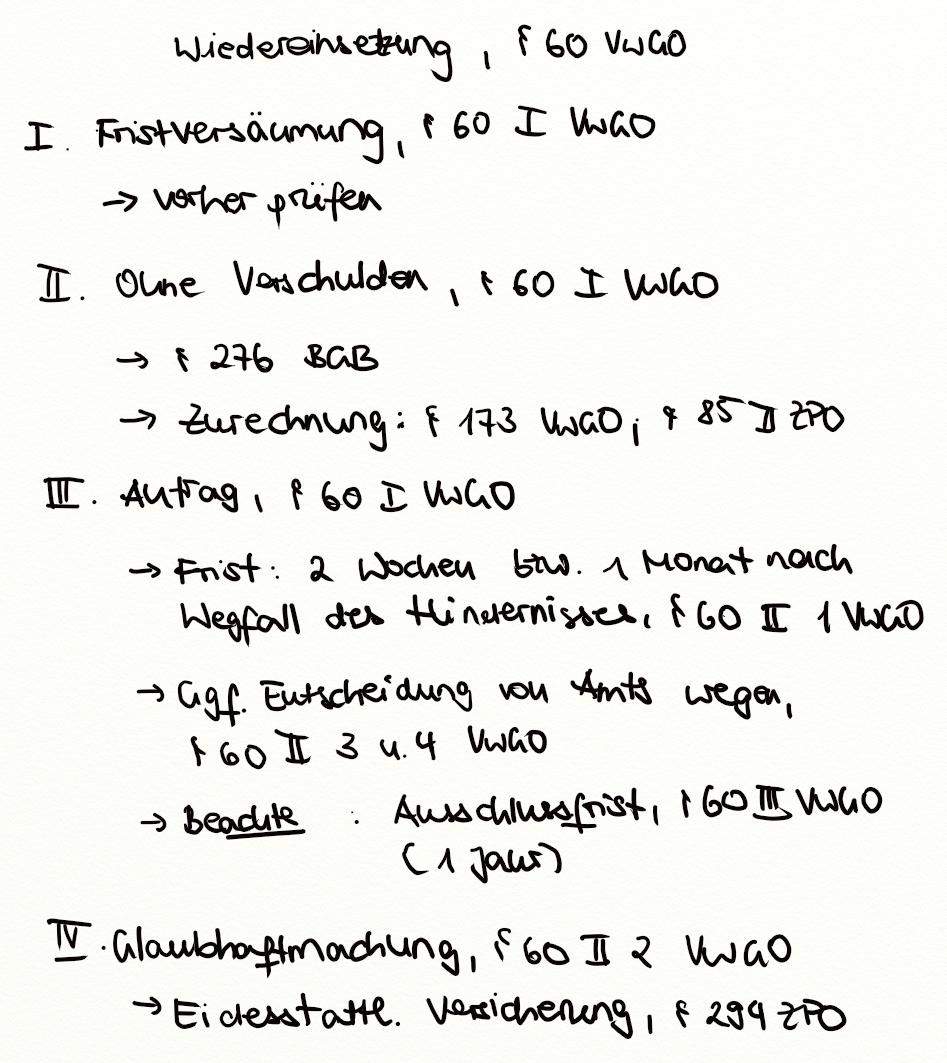 Wiedereinsetzung, § 60 VwGO
I. Fristversäumung, § 60 I VwGO
→ vorher prüfen
II. Ohne Verschulden, § 60 I VwGO
→ § 276 BGB
→ Zurechnung: § 173 VwGO; § 85 II ZPO
III. Antrag, § 60 I VwGO
→ Frist: 2 Wochen bzw. 1 Monat nach
Wegfall des Hindernisses, § 60 II 1 VwGO
→ Ggf. Entscheidung von Amts wegen,
§ 60 II 3 u. 4 VwGO
→ Beachte : Ausschlussfrist, § 60 III VwGO
(1 Jahr)
IV. Glaubhaftmachung, § 60 II 2 VwGO
→ Eidesstattl. Versicherung, § 294 ZPO